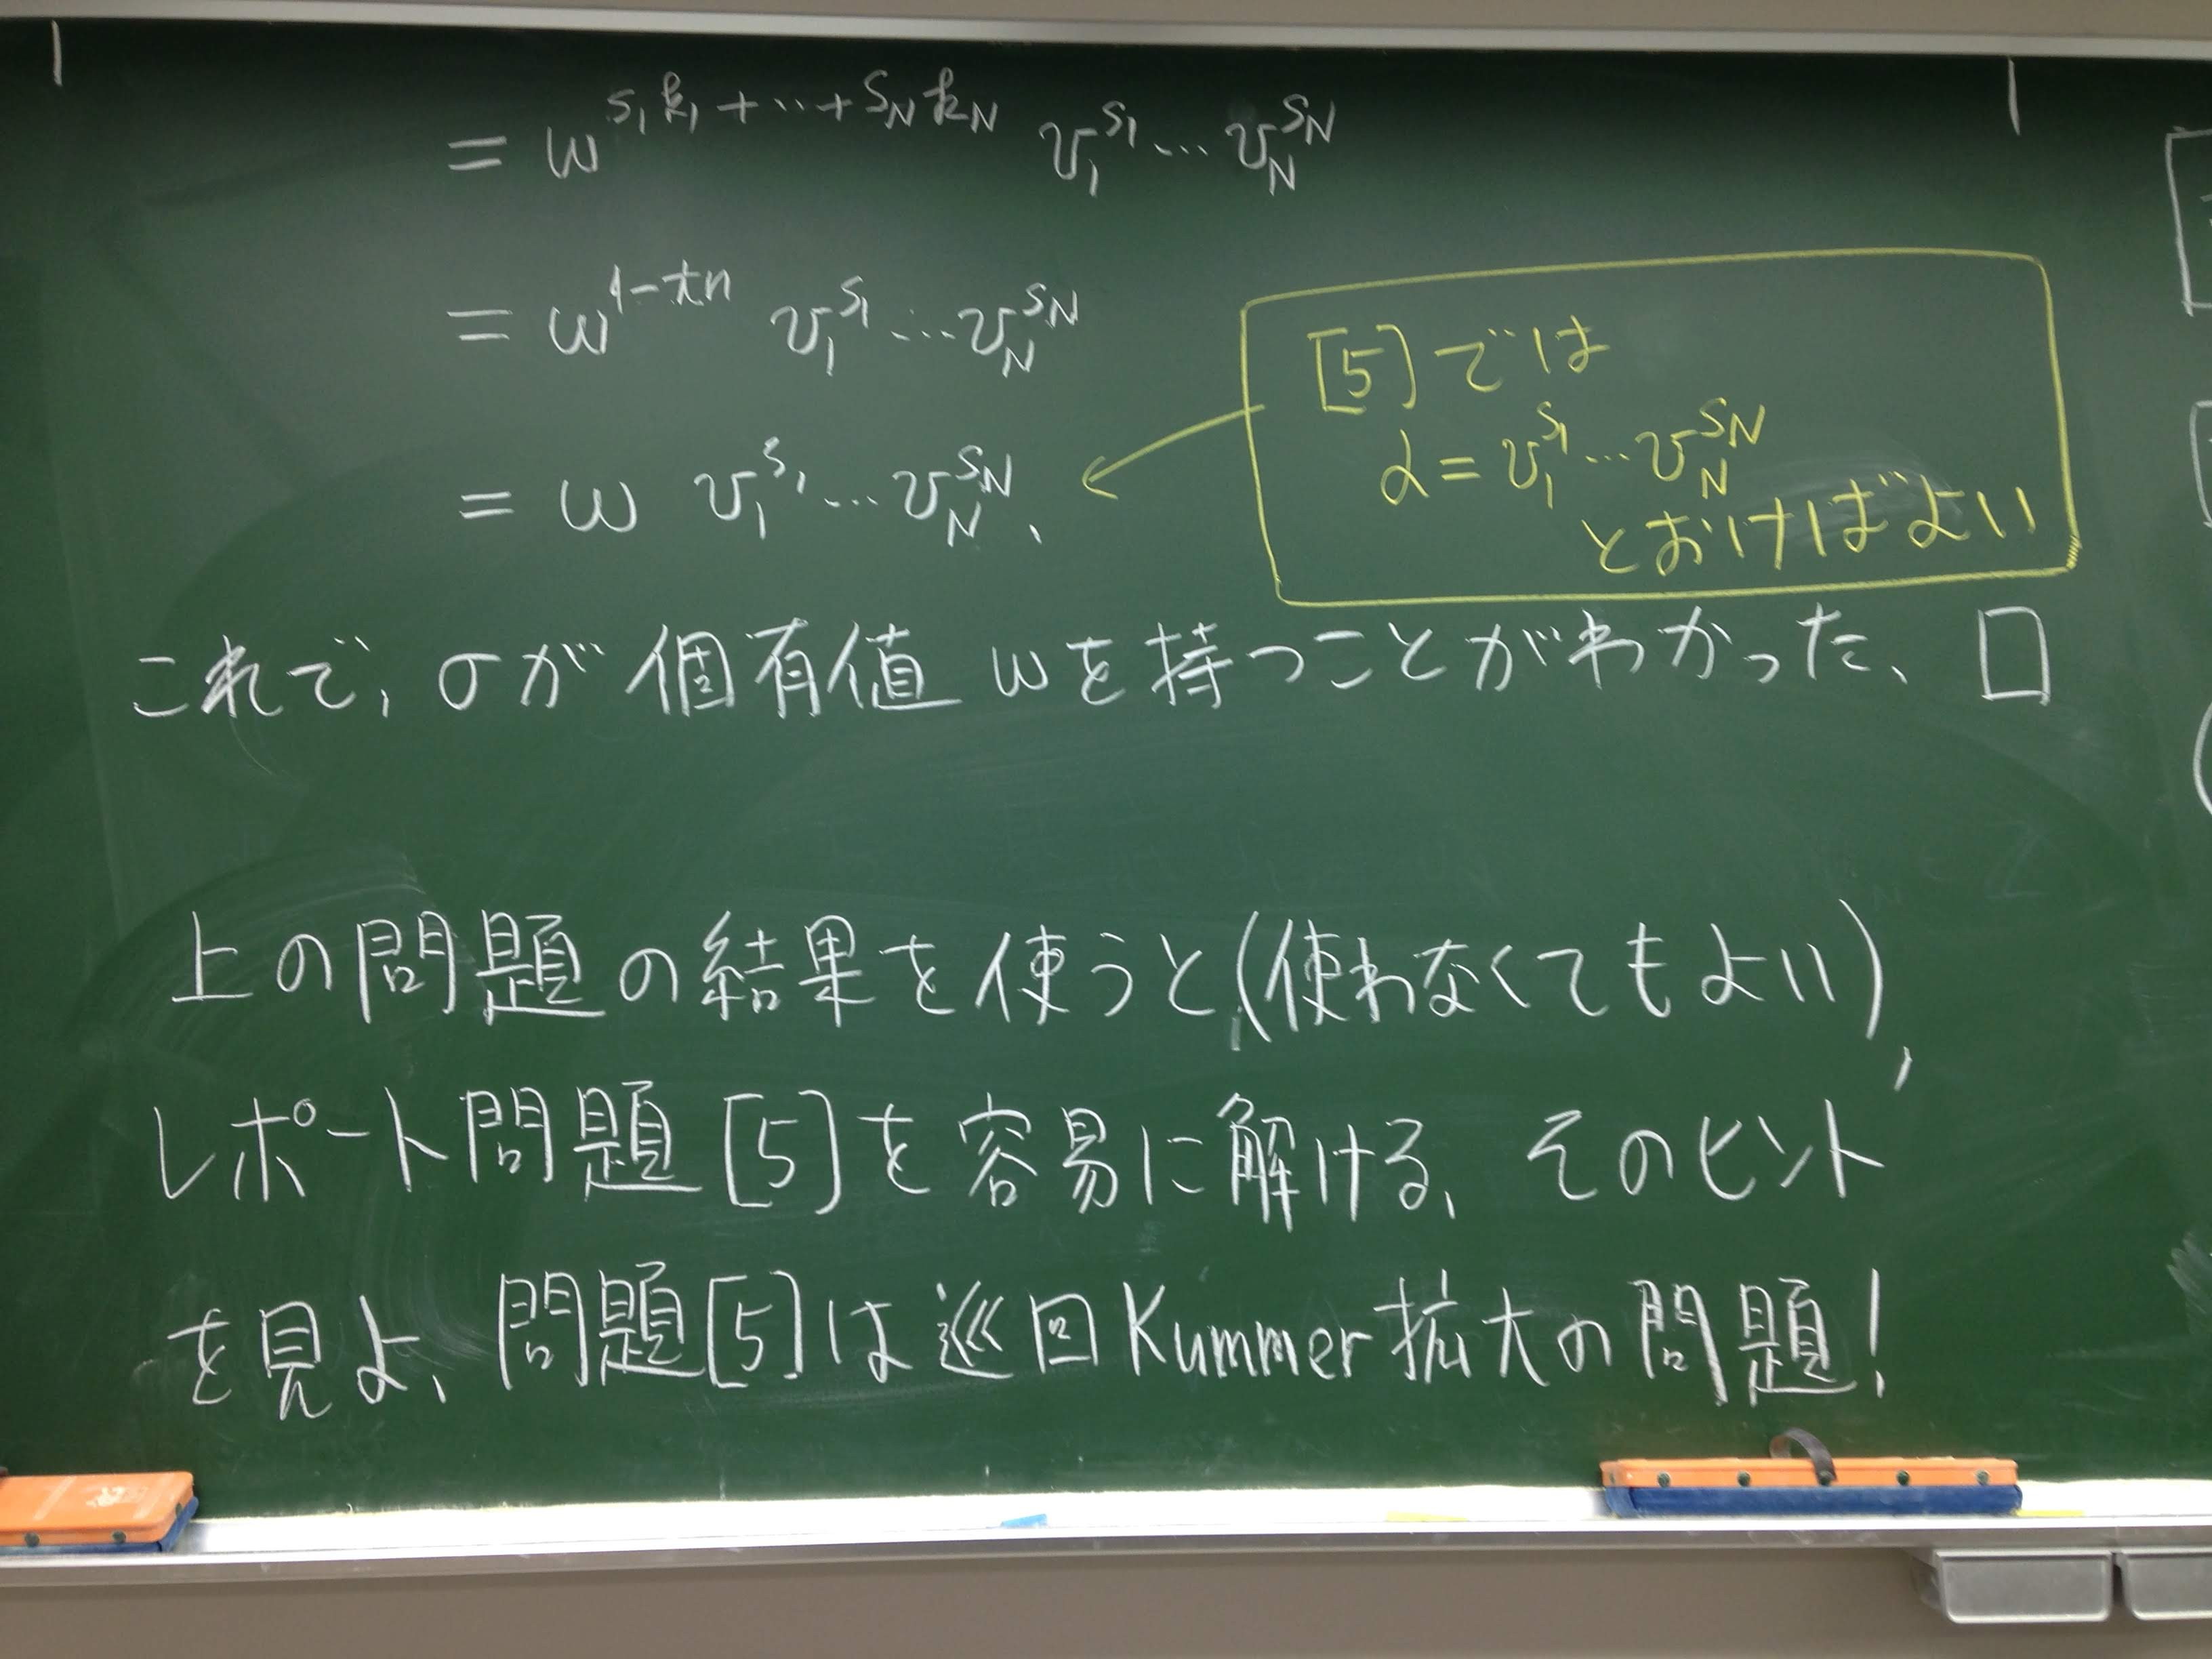 = ω^{s₁k₁+…+s_Nk_N} v₁^{s₁}…v_N^{s_N}
= ω^{1-tn} v₁^{s₁}…v_N^{s_N}
= ω v₁^{s₁}…v_N^{s_N}.
[5]では
α = v₁^{s₁}…v_N^{s_N}
とおけばよい
これで, σが個有値 ωを持つことがわかった. □
上の問題の結果を使うと(使わなくてもよい),
レポート問題[5]を容易に解ける. そのヒント
を見よ. 問題[5]は巡回Kummer拡大の問題!